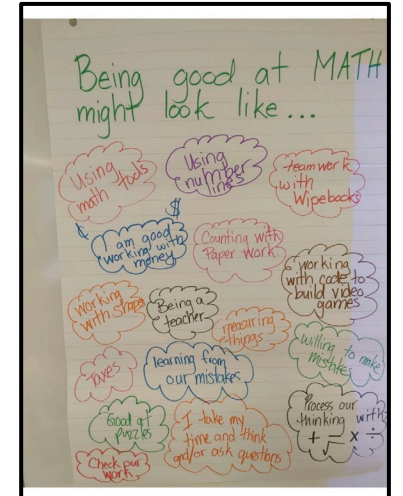 Being good at MATH
might look like...
Using
math tools
Using
number
lines
teamwork
with
Wipebooks
¢
$
I am good
working with
money
Counting with
Paper Work
working
with code to
build video
games
working
with shapes
Being a
teacher
measuring
things
willing to make
mistakes
Taxes
learning from
our mistakes
Good at
Puzzles
I take my
time and think
and/or ask questions
Process our
thinking with
+ - √ x ÷
Check our
work